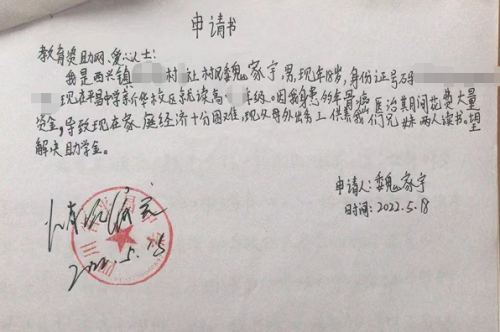 申请书
教育资助网、爱心人士:
我是西兴镇 村 社村民魏家宇,男,现年18岁,身份证号码
现在平昌中学东介华校区就读高 年级。因我身患 骨癌,医治其间花费大量
资金,导致现在家庭经济十分困难,现父母外出务工供养我们兄妹两人读书。望
解决助学金。
申请人:魏家宇
时间:2022.5.18
情况属实
2022.5.18